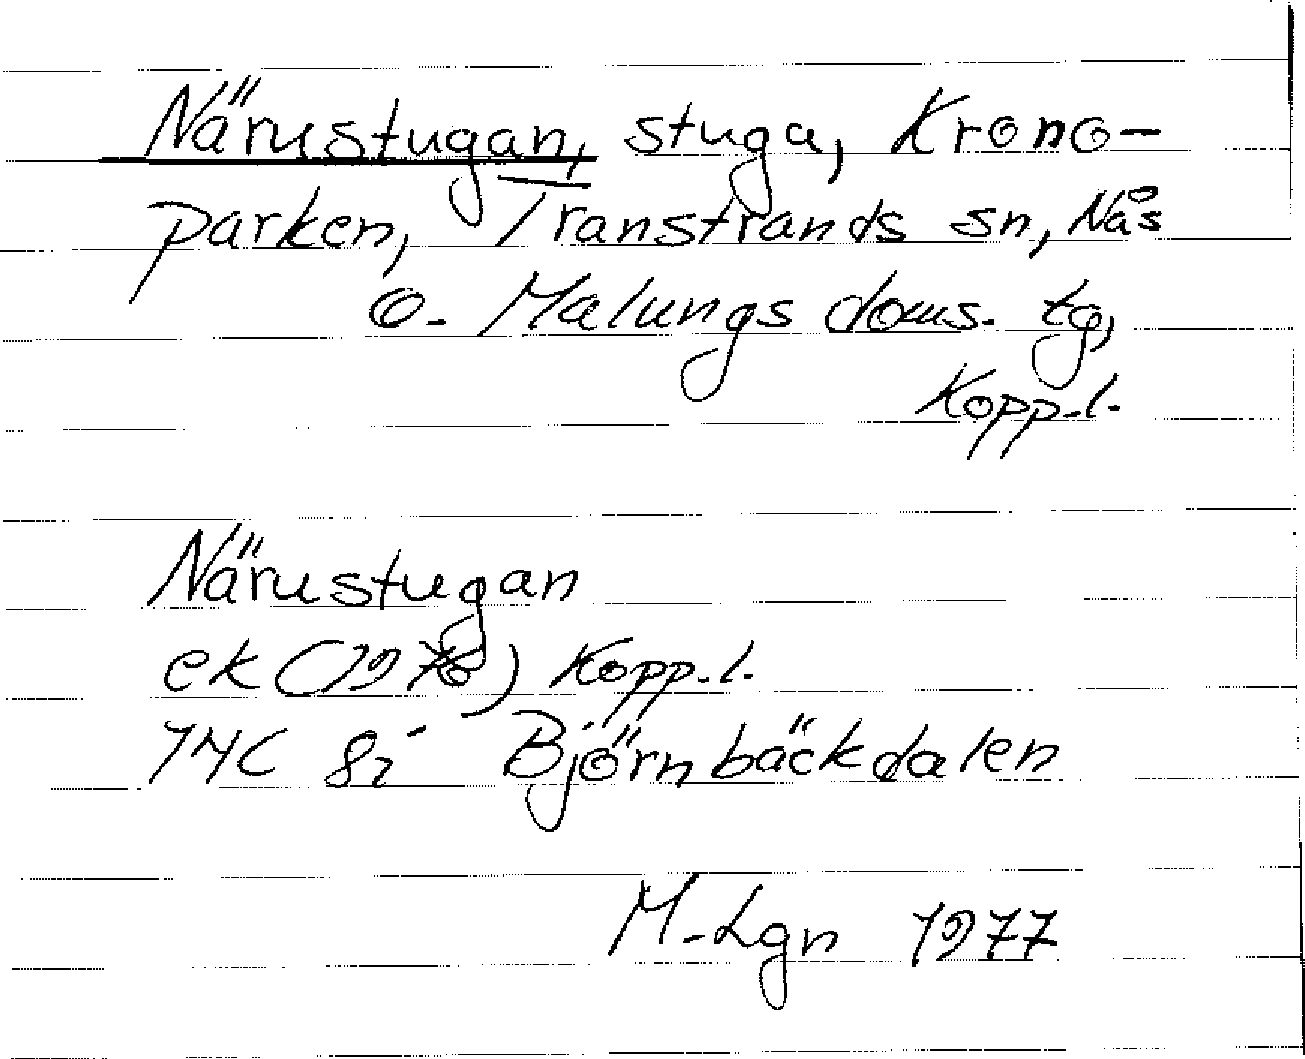 Närustugan, stuga, Krono-
parken, Transtrands sn, Nås
o. Malungs doms. tg,
Kopp.l.
Närustugan
ek (1976) Kopp.l.
14C 8i Björnbäckdalen
M-Lgn 1977